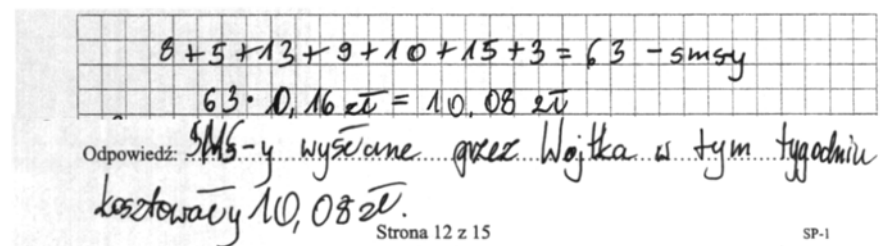 8+5+13+9+10+15+3 = 63 - smsy
63 · 0,16 zł = 10,08 zł
Odpowiedź: SMS-y wysłane przez Wojtka w tym tygodniu
kosztowały 10,08 zł.
Strona 12 z 15 SP-1